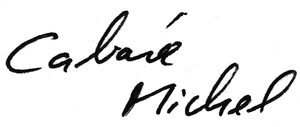 Cabaré
Michel